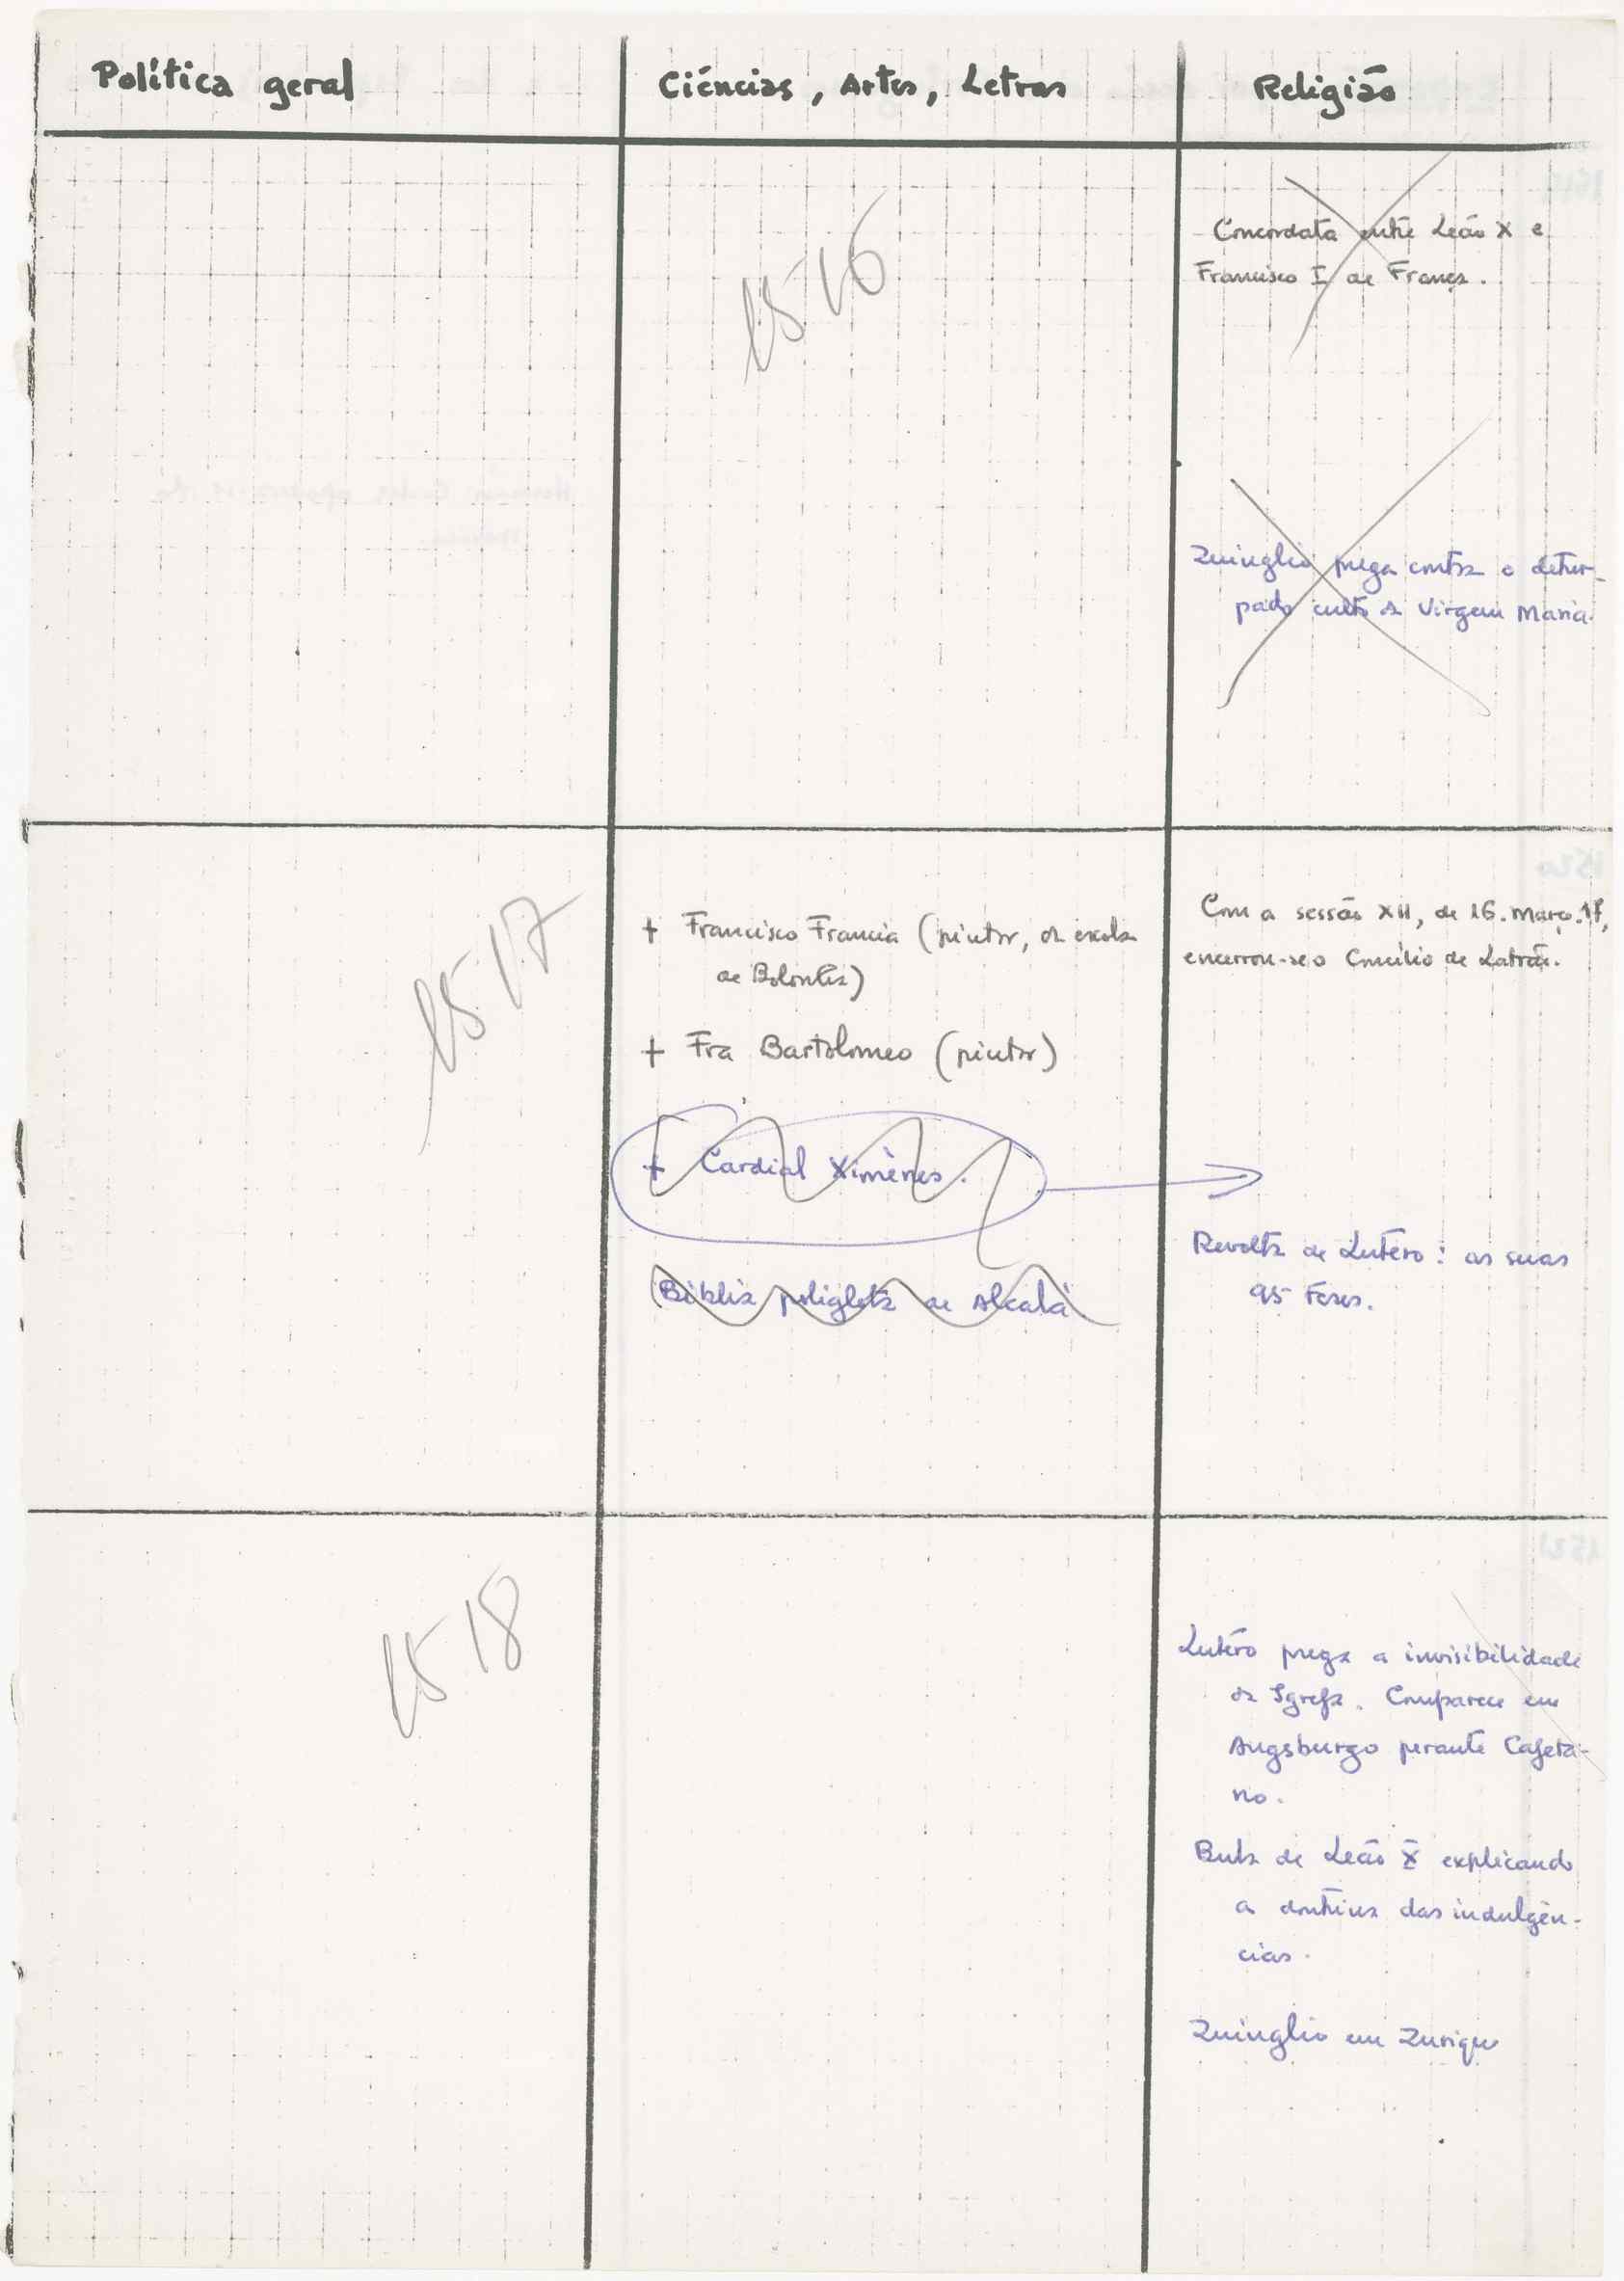 Política geral
Ciências, Artes, Letras
Religião
1516
Concordata entre Leão X e
Francisco I de França.
Zuinglio prega contra o detur-
pado culto da Virgem Maria.
1517
+ Francisco Francia (pintor, da escola
de Bolonha)
+ Fra Bartolomeo (pintor)
+ Cardial Ximènes.
Bíblia poliglota de Alcalá
Com a sessão XII, de 16. Março. 17,
encerrou-se o Concílio de Latrão.
Revolta de Lutero: as suas
95 Teses.
1518
Lutero prega a invisibilidade
da Igreja. Comparece em
Augsburgo perante Cajeta-
no.
Bula de Leão X explicando
a doutrina das indulgên-
cias.
Zuinglio em Zurique